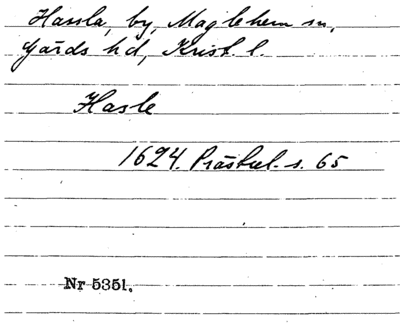 Hassla, by, Maglehem sn,
Gärds hd, Krist. l.
Hasle
1624. Präskel. s. 65
Nr 5351.